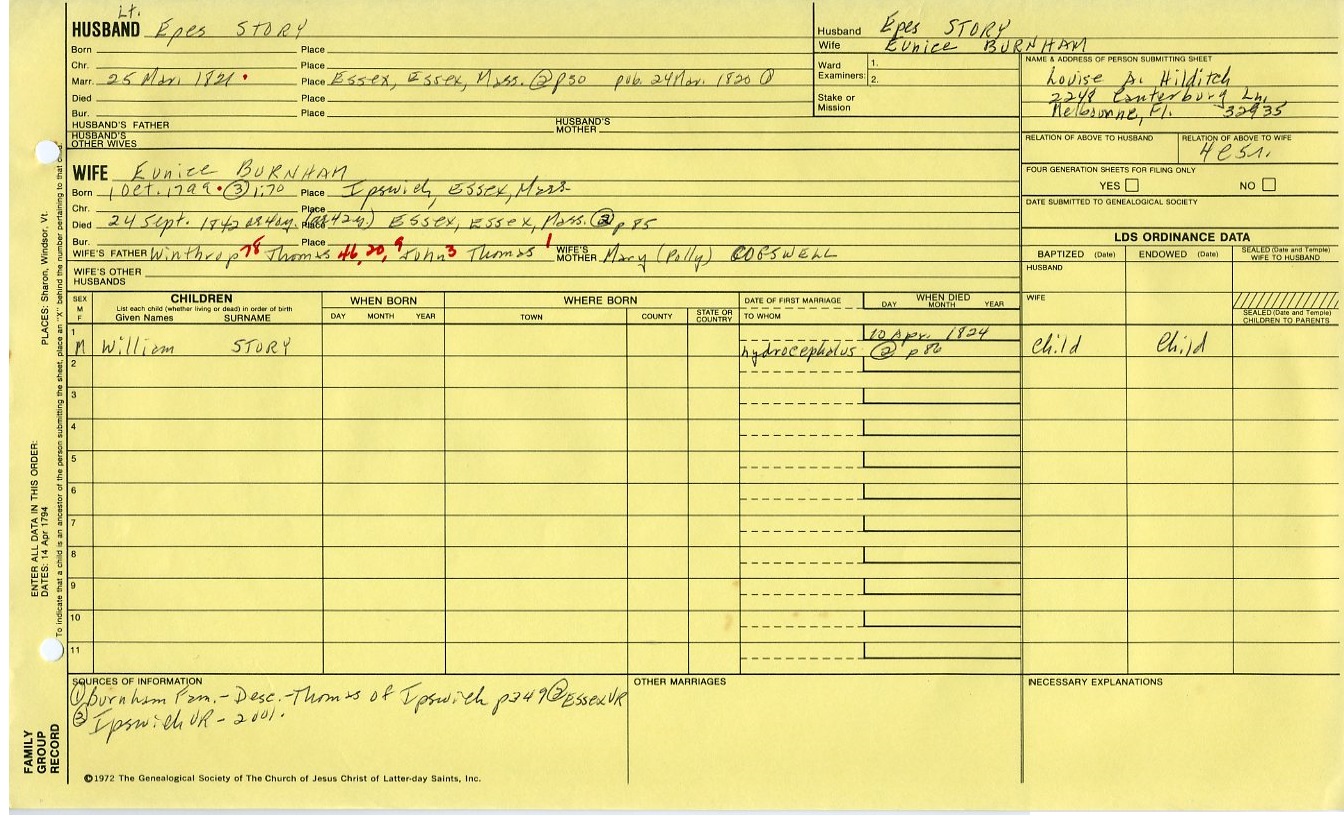 Lt.
HUSBAND Epes STORY
Born Place
Chr. Place
Marr. 25 Mar. 1821 • Place Essex, Essex, Mass. ② p50 pub. 24 Mar. 1820 ①
Died Place
Bur. Place
HUSBAND'S FATHER HUSBAND'S MOTHER
HUSBAND'S OTHER WIVES
Husband Epes STORY
Wife Eunice BURNHAM
Ward Examiners: 1.
2.
Stake or Mission
NAME & ADDRESS OF PERSON SUBMITTING SHEET
Louise A. Hilditch
2248 Canterbury Ln.
Melbourne, Fl. 32935
RELATION OF ABOVE TO HUSBAND RELATION OF ABOVE TO WIFE
4c5r.
FOUR GENERATION SHEETS FOR FILING ONLY
YES NO
DATE SUBMITTED TO GENEALOGICAL SOCIETY
WIFE Eunice BURNHAM
Born 1 Oct. 1799 • ③ 1:70 Place Ipswich, Essex, Mass.
Chr. Place
Died 24 Sept. 1842 (ae 42y) Place Essex, Essex, Mass. ② p85
Bur. Place
WIFE'S FATHER Winthrop 78 Thomas 46, 20, 9 John 3 Thomas 1 WIFE'S MOTHER Mary (Polly) COGSWELL
WIFE'S OTHER HUSBANDS
LDS ORDINANCE DATA
BAPTIZED (Date) ENDOWED (Date) SEALED (Date and Temple) WIFE TO HUSBAND
HUSBAND
WIFE
SEALED (Date and Temple) CHILDREN TO PARENTS
SEX M F CHILDREN WHEN BORN WHERE BORN DATE OF FIRST MARRIAGE WHEN DIED
List each child (whether living or dead) in order of birth
Given Names SURNAME DAY MONTH YEAR TOWN COUNTY STATE OR COUNTRY TO WHOM DAY MONTH YEAR
1 10 Apr. 1824
M William STORY hydrocephalus ② p86 Child Child
2
3
4
5
6
7
8
9
10
11
SOURCES OF INFORMATION
① Burnham Fam. - Desc. - Thomas of Ipswich p249 ② Essex VR
③ Ipswich VR - 2 vol.
OTHER MARRIAGES
NECESSARY EXPLANATIONS
©1972 The Genealogical Society of The Church of Jesus Christ of Latter-day Saints, Inc.
FAMILY GROUP RECORD
ENTER ALL DATA IN THIS ORDER:
DATES: 14 Apr 1794
PLACES: Sharon, Windsor, Vt.
To indicate that a child is an ancestor of the person submitting the sheet, place an "X" behind the number pertaining to that